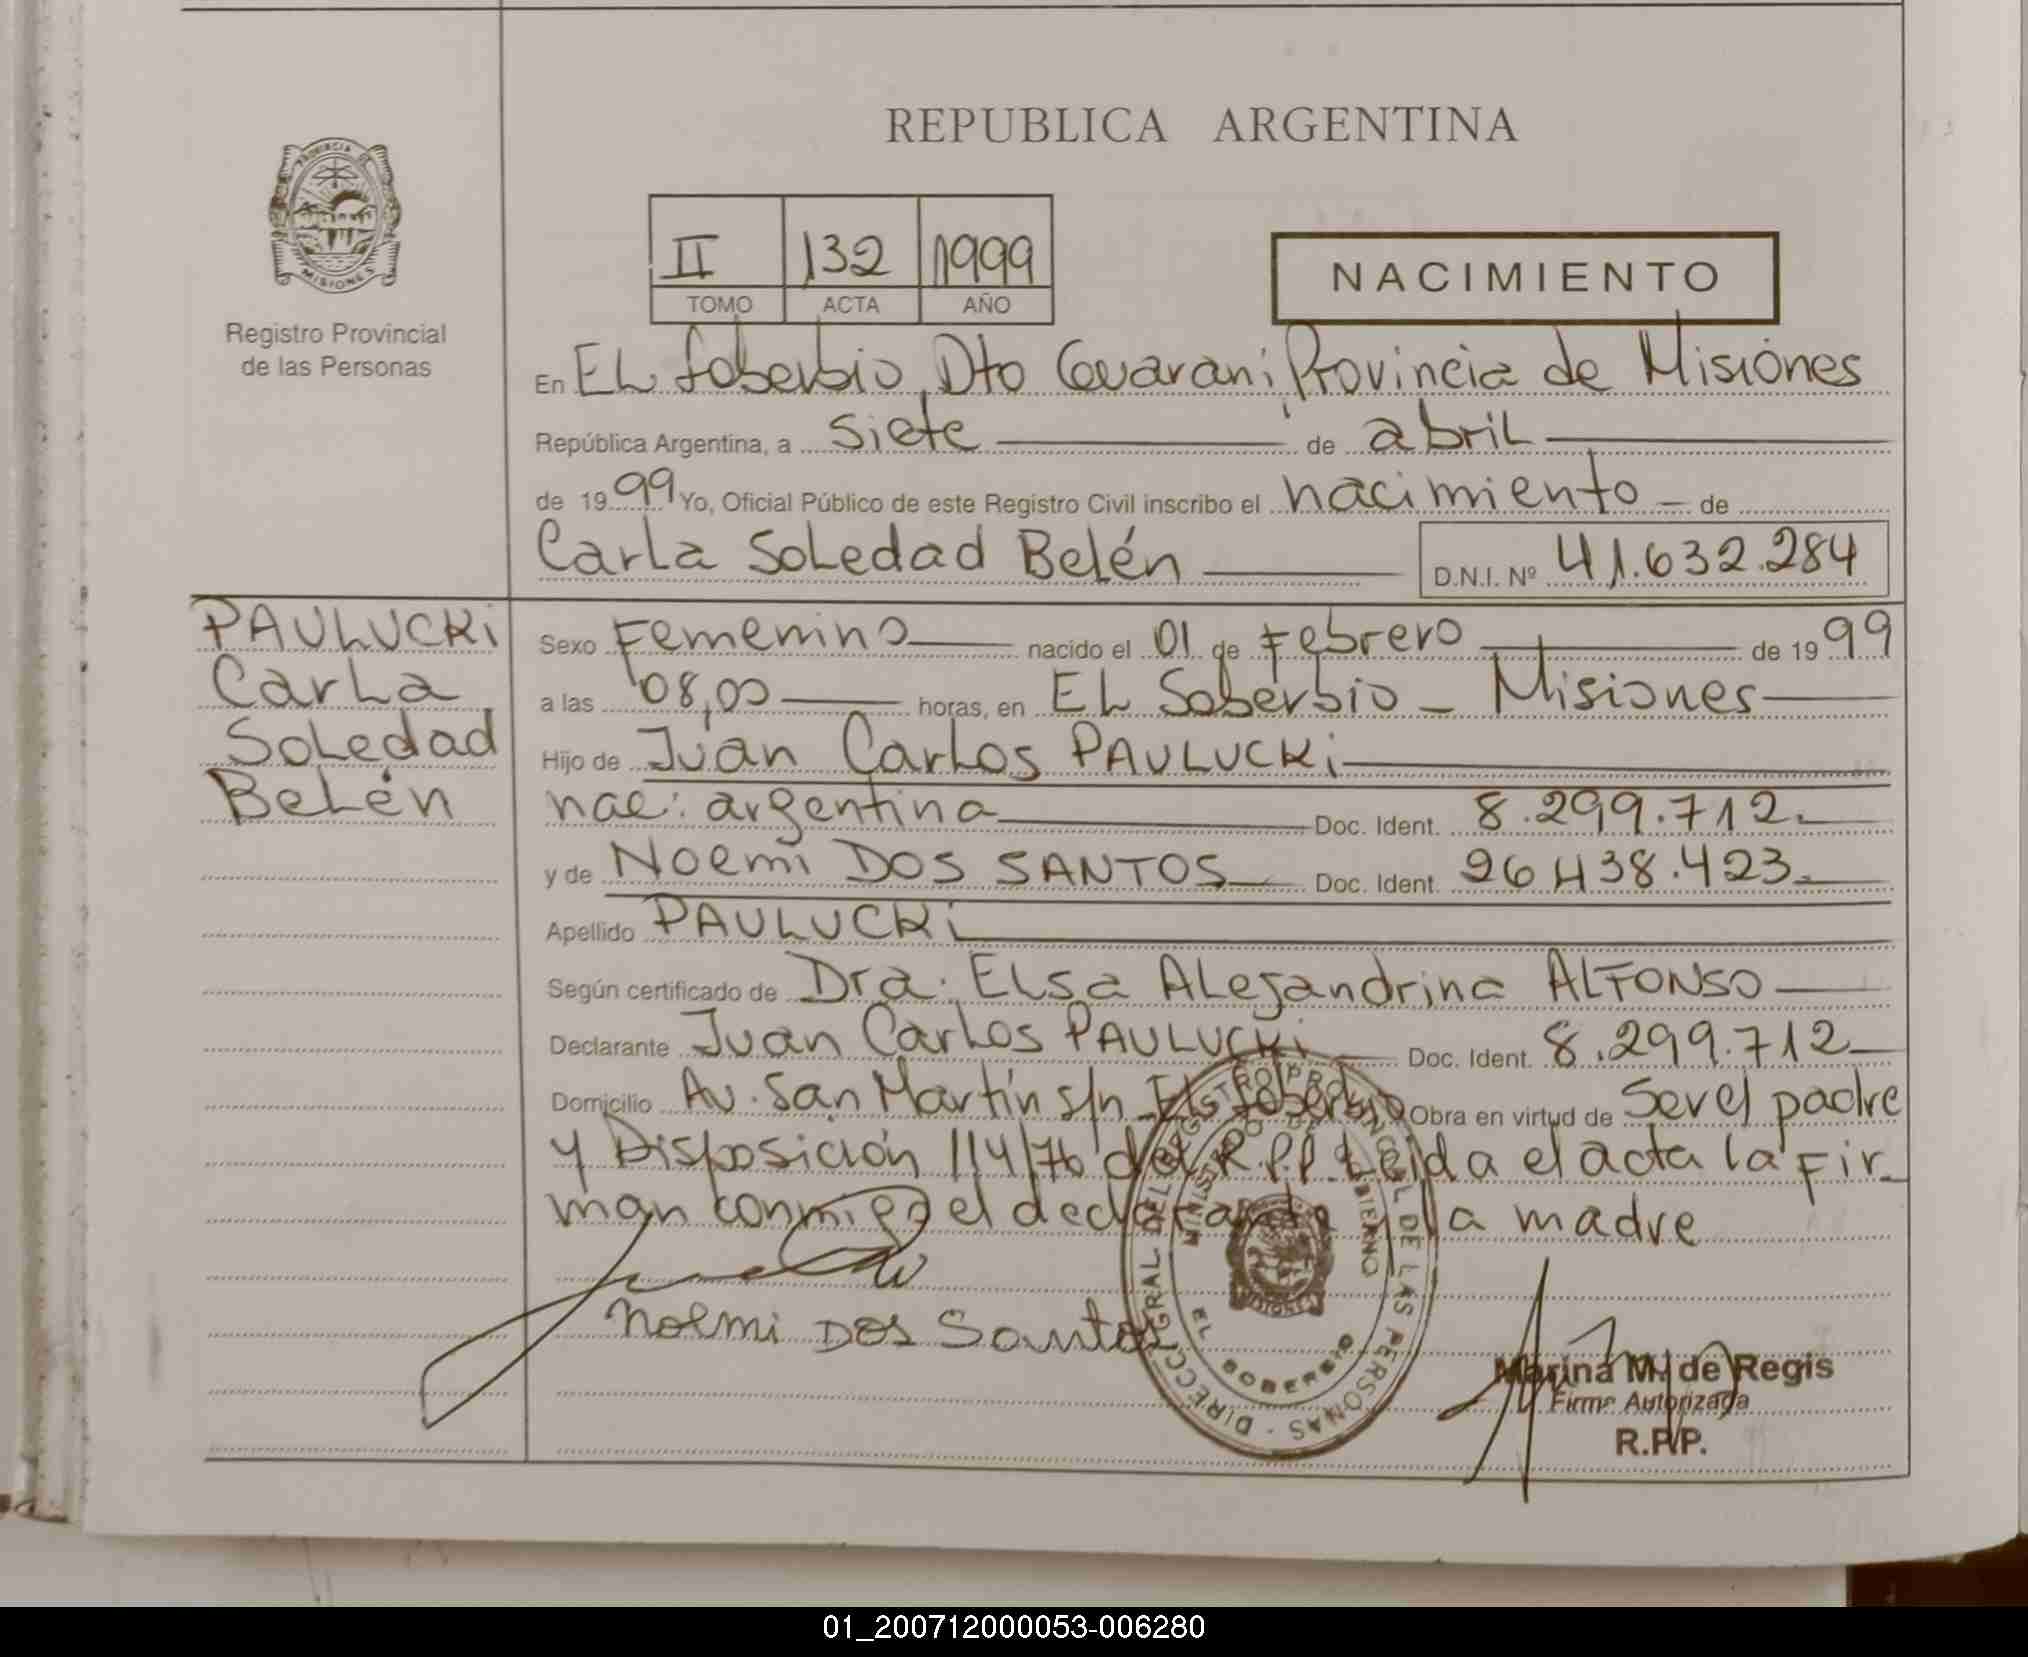 REPUBLICA ARGENTINA
PROVINCIA DE
MISIONES
Registro Provincial
de las Personas
II 132 1999
TOMO ACTA AÑO
NACIMIENTO
En EL Soberbio, Dto Guaraní Provincia de Misiones
República Argentina, a siete de abril
de 1999 Yo, Oficial Público de este Registro Civil inscribo el nacimiento - de
Carla Soledad Belén D.N.I. Nº 41.632.284
PAULUCKi
Carla
Soledad
Belén
Sexo Femenino nacido el 01 de Febrero de 1999
a las 08,00 horas, en EL Soberbio - Misiones
Hijo de Juan Carlos PAULUCKi
nac: argentina Doc. Ident. 8.299.712.
y de Noemi DOS SANTOS Doc. Ident. 26.438.423.
Apellido PAULUCKi
Según certificado de Dra. Elsa Alejandrina ALFONSO
Declarante Juan Carlos PAULUCKi Doc. Ident. 8.299.712
Domicilio Av. San Martín s/n El Soberbio Obra en virtud de Ser el padre
y Disposición 114/76 del R.P.P. Leida el acta la fir-
man conmigo el declarante y la madre
Noemi Dos Santos
DIRECC. GRAL. DEL REGISTRO PROVINCIAL DE LAS PERSONAS
MINISTERIO DE GOBIERNO
MISIONES
EL SOBERBIO
Marina M. de Regis
Firma Autorizada
R.P.P.
01_200712000053-006280